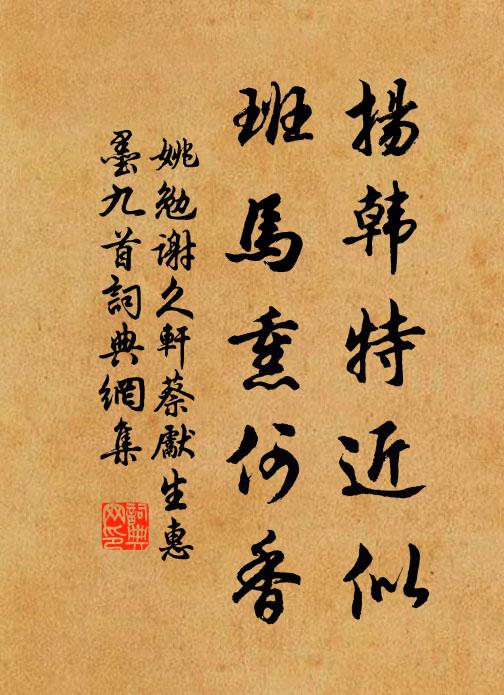 揚韩特近似
班馬熏何香
姚勉謝久軒蔡獻生惠
墨九首詞典網集
詞典网印